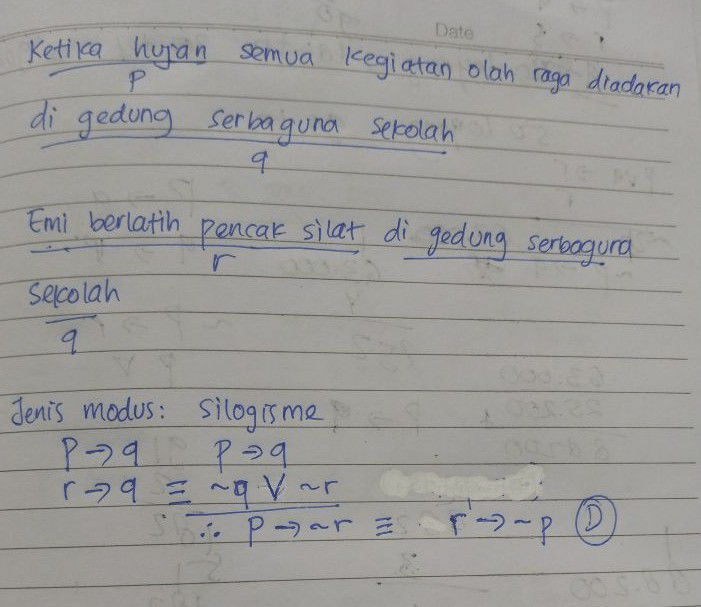 Date
Ketika hujan semua kegiatan olah raga diadakan
p
di gedung serbaguna sekolah
q
Emi berlatih pencak silat di gedung serbaguna
r
sekolah
q
Jenis modus: silogisme
p → q p → q
r → q ≡ ~q ∨ ~r
∴ p → ~r ≡ r → ~p D